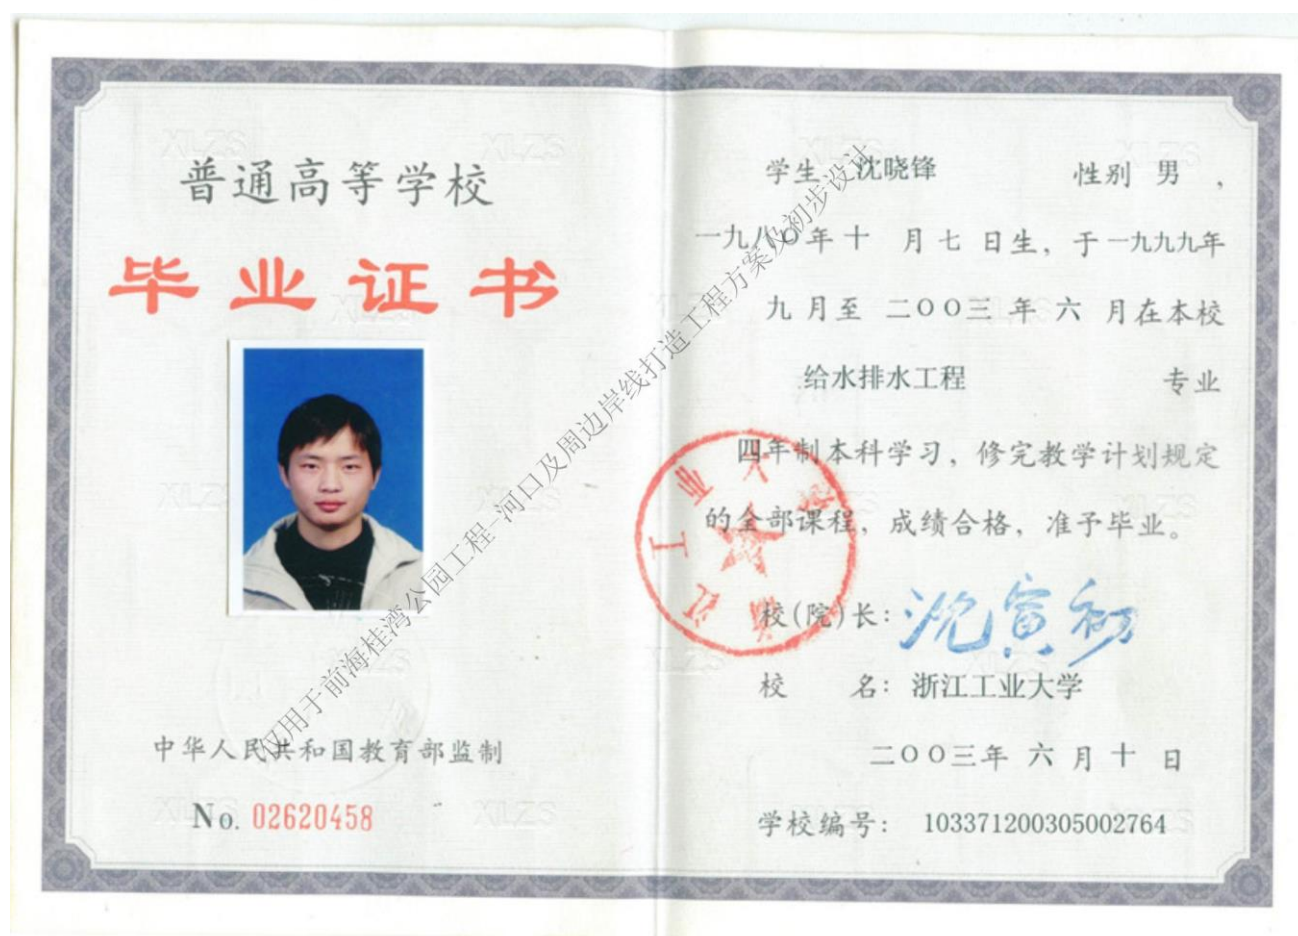 普通高等学校
毕业证书
中华人民共和国教育部监制
No. 02620458
学生 沈晓锋 性别 男 ,
一九八〇年十 月七 日生, 于一九九九年
九月至 二〇〇三 年 六 月在本校
给水排水工程 专业
四年制本科学习, 修完教学计划规定
的全部课程, 成绩合格, 准予毕业。
校(院)长: 沈寅初
校 名: 浙江工业大学
二〇〇三年 六 月 十 日
学校编号: 103371200305002764
浙江工业大学
仅用于前海桂湾公园工程-河口及周边岸线打造工程方案及初步设计
XLZS